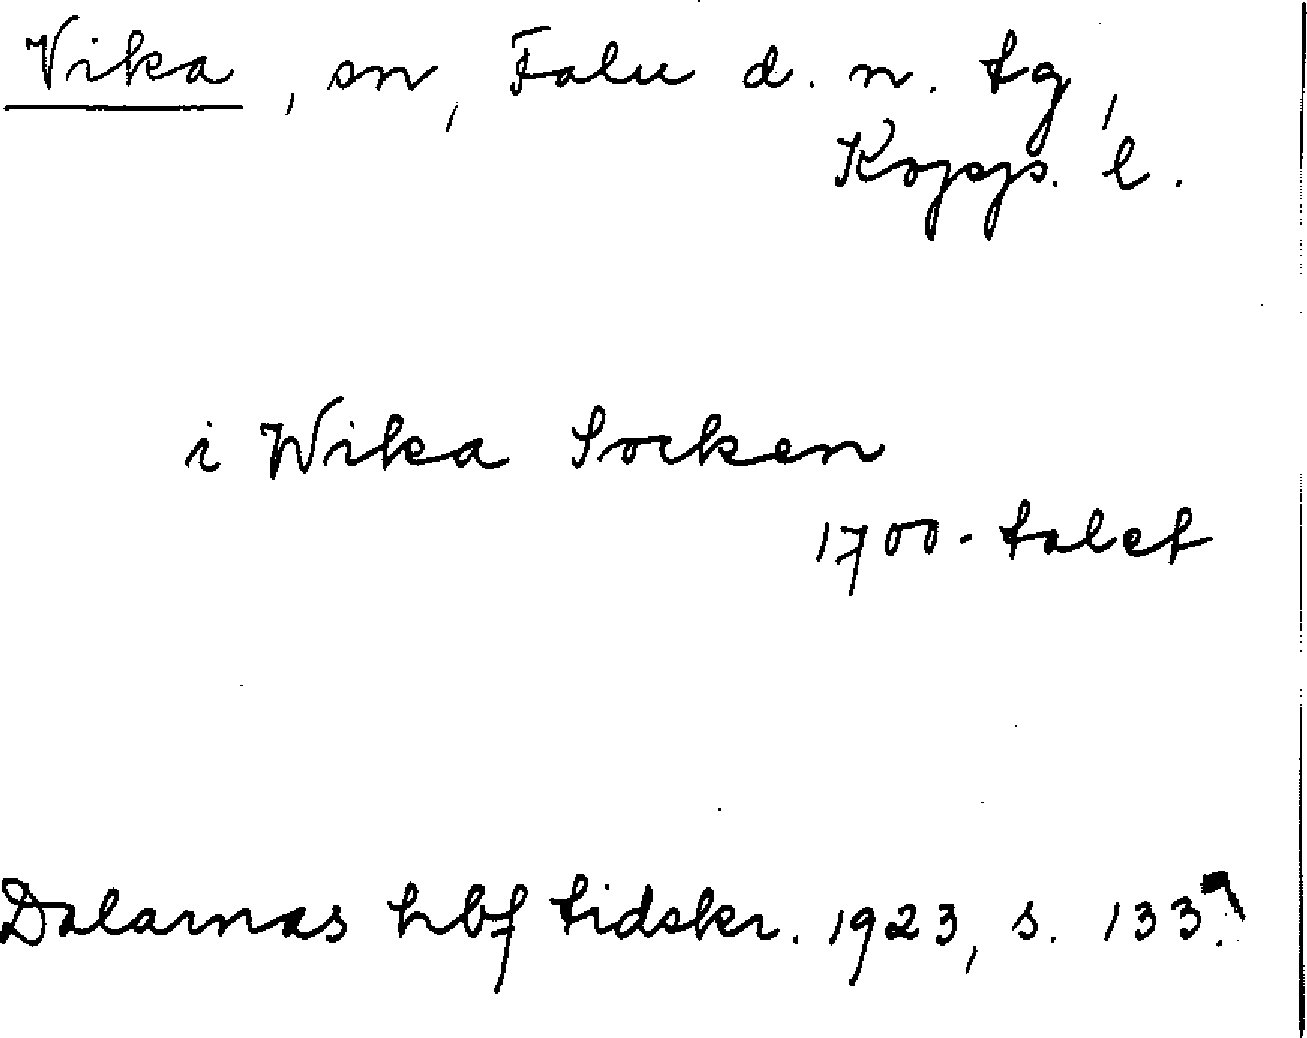 Vika, sn, Falu d. n. tg,
Kopps. l.
i Wika Socken
1700-talet
Dalarnas hbf tidskr. 1923, s. 133.